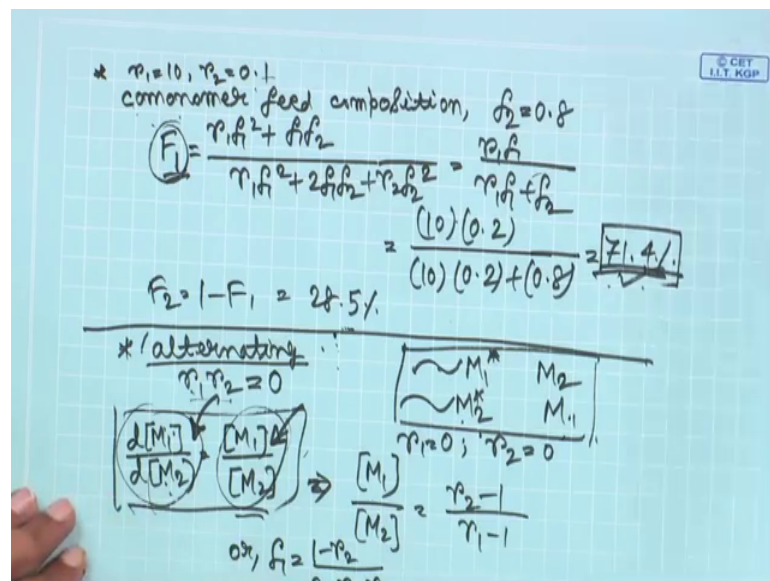 © CET
I.I.T. KGP
* r₁=10, r₂=0.1
comonomer feed composition, f₂=0.8
F₁ = (r₁f₁² + f₁f₂) / (r₁f₁² + 2f₁f₂ + r₂f₂²) = r₁f₁ / (r₁f₁ + f₂)
= (10)(0.2) / ((10)(0.2)+(0.8)) = 71.4%
F₂ = 1-F₁ = 28.5%
* alternating :
r₁r₂=0
~M₁* M₂
~M₂* M₁
r₁=0; r₂=0
d[M₁] / d[M₂] = [M₁] / [M₂] ⇒ [M₁] / [M₂] = (r₂-1) / (r₁-1)
or, f₁ = 1-r₂